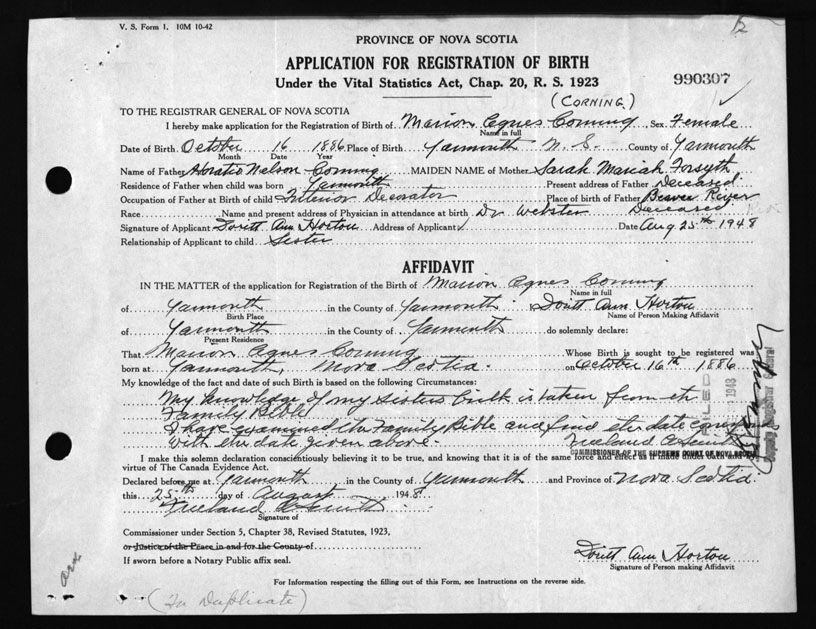 V. S. Form 1. 10M 10-42
PROVINCE OF NOVA SCOTIA
APPLICATION FOR REGISTRATION OF BIRTH
Under the Vital Statistics Act, Chap. 20, R. S. 1923
990307
(CORNING.)
TO THE REGISTRAR GENERAL OF NOVA SCOTIA
I hereby make application for the Registration of Birth of Marion Agnes Corning Sex Female
Name in full
Date of Birth October 16 1886 Place of Birth Yarmouth N. S. County of Yarmouth
Month Date Year
Name of Father Horatio Nelson Corning MAIDEN NAME of Mother Sarah Mariah Forsyth
Residence of Father when child was born Yarmouth Present address of Father Deceased
Occupation of Father at Birth of child Interior Decorator Place of birth of Father Beaver River
Race Name and present address of Physician in attendance at birth Dr Webster Deceased
Signature of Applicant Doritt Ann Horton Address of Applicant Date Aug 25th 1948
Relationship of Applicant to child Sister
AFFIDAVIT
IN THE MATTER of the application for Registration of the Birth of Marion Agnes Corning
Name in full
of Yarmouth in the County of Yarmouth Doritt Ann Horton
Birth Place Name of Person Making Affidavit
of Yarmouth in the County of Yarmouth do solemnly declare:
Present Residence
That Marion Agnes Corning Whose Birth is sought to be registered was
born at Yarmouth, Nova Scotia. on October 16th 1886
My knowledge of the fact and date of such Birth is based on the following Circumstances:
My knowledge of my sisters birth is taken from the
Family Bible
I have examined the Family Bible and find the date corresponds
with the date given above.
COMMISSIONER OF THE SUPREME COURT OF NOVA SCOTIA
I make this solemn declaration conscientiously believing it to be true, and knowing that it is of the same force and effect as if made under oath and by
virtue of The Canada Evidence Act.
Declared before me at Yarmouth in the County of Yarmouth and Province of Nova Scotia
this 25th day of August 1948
Signature of
Commissioner under Section 5, Chapter 38, Revised Statutes, 1923,
or Justice of the Peace in and for the County of
If sworn before a Notary Public affix seal.
Doritt Ann Horton
Signature of Person making Affidavit
For Information respecting the filling out of this Form, see Instructions on the reverse side.
(In Duplicate)
FILED
Deputy Registrar General